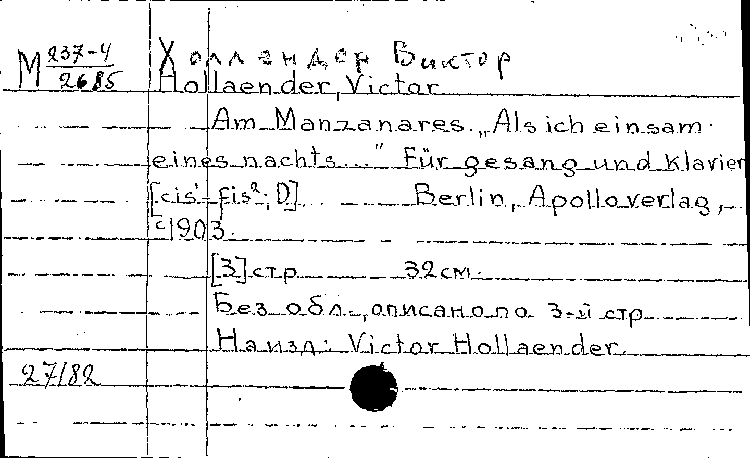 М 237-4/2685
Холлендер Виктор
Hollaender, Victor
Am Manzanares. „Als ich einsam
eines nachts..." Für gesang und klavier
[cis¹-fis²; D]. Berlin, Apolloverlag,
c1903.
[3] стр 32 см.
Без обл., описано по 3-й стр
На изд: Victor Hollaender.
27/82